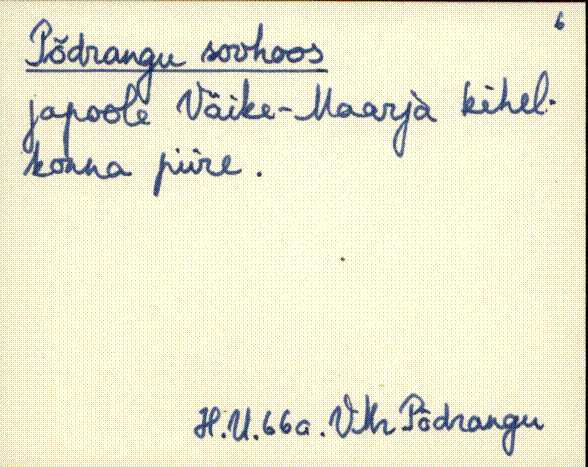 6
Põdrangu sovhoos
japoole Väike-Maarja kihel-
konna piire.
H.U.66a. VMr Põdrangu